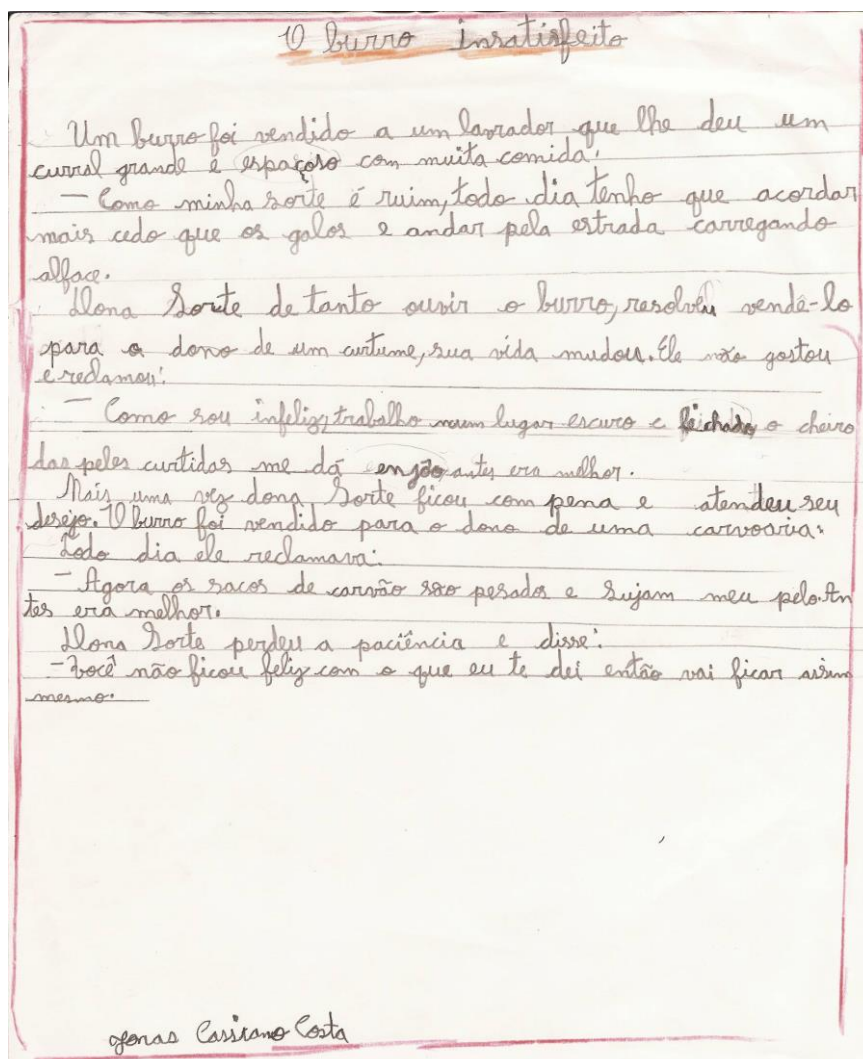 O burro insatisfeito
Um burro foi vendido a um lavrador que lhe deu um
curral grande e espaçoso com muita comida:
— Como minha sorte é ruim, todo dia tenho que acordar
mais cedo que os galos e andar pela estrada carregando
alface.
Dona Sorte de tanto ouvir o burro, resolveu vendê-lo
para o dono de um curtume, sua vida mudou. Ele não gostou
e reclamou:
— Como sou infeliz, trabalho num lugar escuro e fechado, o cheiro
das peles curtidas me dá enjôo, antes era melhor.
Mais uma vez dona Sorte ficou com pena e atendeu seu
desejo. O burro foi vendido para o dono de uma carvoaria.
Todo dia ele reclamava:
— Agora os sacos de carvão são pesados e sujam meu pelo. An
tes era melhor.
Dona Sorte perdeu a paciência e disse:
— Você não ficou feliz com o que eu te dei então vai ficar assim
mesmo.
Jonas Cassiano Costa